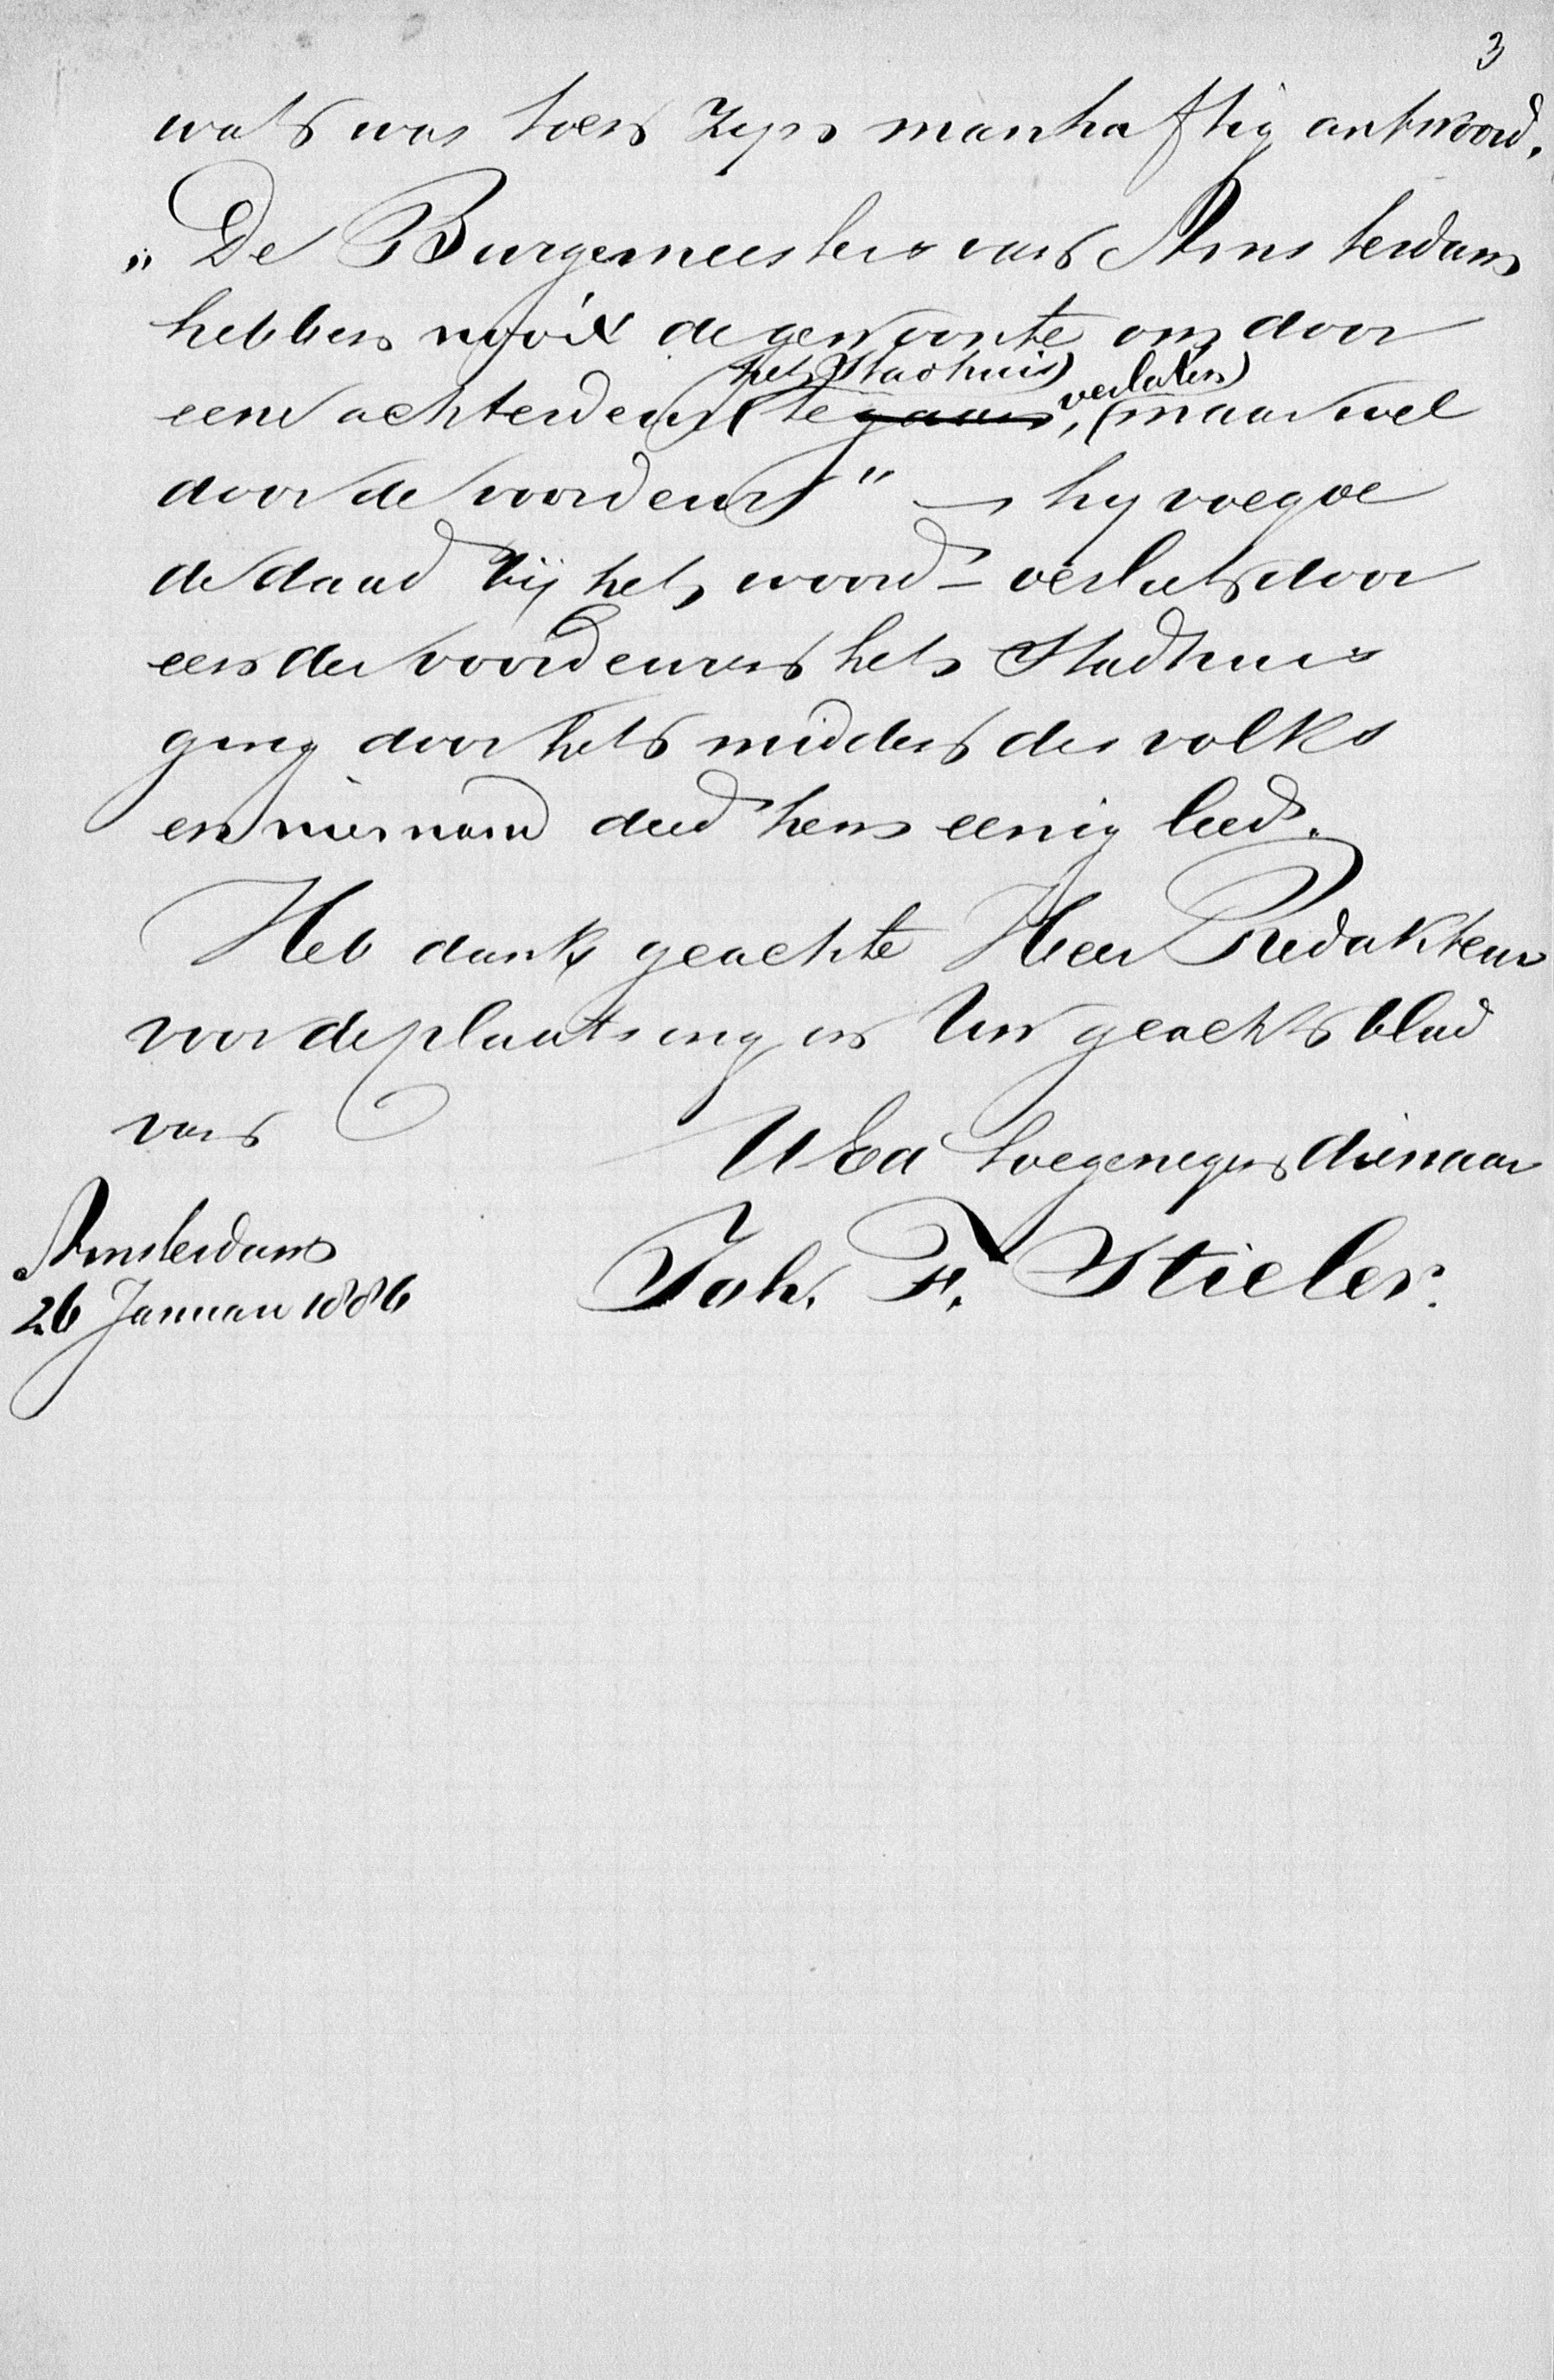 3
wat was toen Zijn manhaftig antwoord.
„De Burgemeesters van Amsterdam
hebben nooit de gewoonte om door
het Stadhuis verlaten
eene achterdeur te gaan, maar wel
door de voordeur" — hij voegde
de daad bij het woord – verliet door
een der voordeuren het Stadhuis
ging door het midden des volks
en niemand deed hem eenig leed.
Heb dank geachte Heer Redakteur
voor de plaatsing in Uw geacht blad
van
UEd toegenegen dienaar
Amsterdam
26 Januari 1886
Joh. F. Stieler.